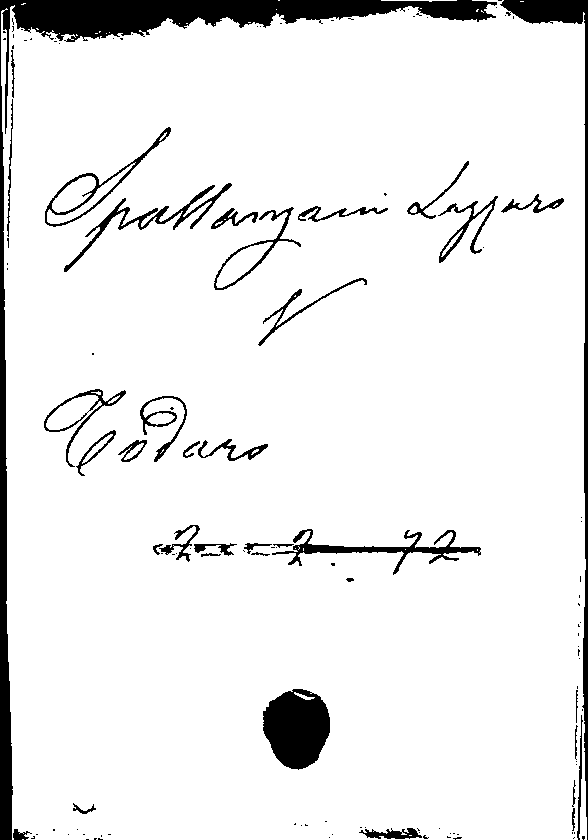 Spallanzani Lazzaro
V
Todaro
2 2 72